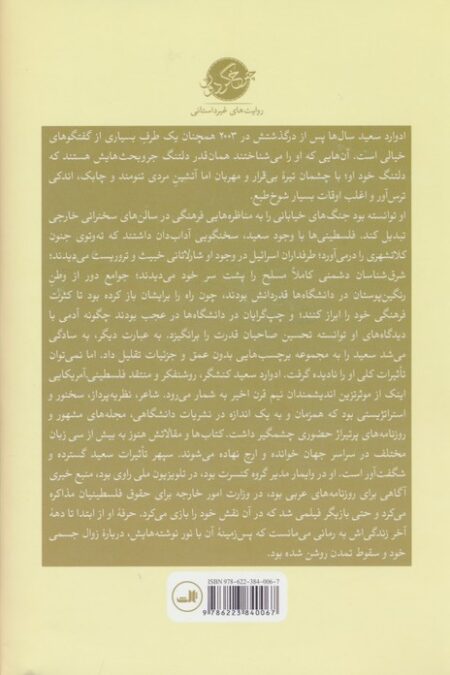 روایت‌های غیرداستانی
ادوارد سعید سال‌ها پس از درگذشتش در ۲۰۰۳ همچنان یک طرفِ بسیاری از گفتگوهای
خیالی است. آن‌هایی که او را می‌شناختند همان‌قدر دلتنگ جروبحث‌هایش هستند که
دلتنگ خود او؛ با چشمان تیرهٔ بی‌قرار و مهربان اما آتشینِ مردی تنومند و چابک، اندکی
ترس‌آور و اغلب اوقات بسیار شوخ‌طبع.
او توانسته بود جنگ‌های خیابانی را به مناظره‌هایی فرهنگی در سالن‌های سخنرانی خارجی
تبدیل کند. فلسطینی‌ها با وجود سعید، سخنگویی آداب‌دان داشتند که ته‌وتوی جنون
کلانشهری را درمی‌آورد؛ طرفداران اسرائیل در وجود او شارلاتانی خبیث و تروریست می‌دیدند؛
شرق‌شناسان دشمنی کاملاً مسلح را پشت سر خود می‌دیدند؛ جوامع دور از وطنِ
رنگین‌پوستان در دانشگاه‌ها قدردانش بودند، چون راه را برایشان باز کرده بود تا کثرت
فرهنگی خود را ابراز کنند؛ و چپ‌گرایان در دانشگاه‌ها در عجب بودند چگونه آدمی با
دیدگاه‌های او توانسته تحسین صاحبان قدرت را برانگیزد. به عبارت دیگر، به سادگی
می‌شد سعید را به مجموعه برچسب‌هایی بدون عمق و جزئیات تقلیل داد. اما نمی‌توان
تأثیرات کلی او را نادیده گرفت. ادوارد سعید کنشگر، روشنفکر و منتقد فلسطینی‌آمریکایی
اینک از موثرترین اندیشمندان نیم قرن اخیر به شمار می‌رود. شاعر، نظریه‌پرداز، سخنور و
استراتژیستی بود که همزمان و به یک اندازه در نشریات دانشگاهی، مجله‌های مشهور و
روزنامه‌های پرتیراژ حضوری چشمگیر داشت. کتاب‌ها و مقالاتش هنوز به بیش از سی زبان
مختلف در سراسر جهان خوانده و ارج نهاده می‌شوند. سپهر تأثیرات سعید گسترده و
شگفت‌آور است. او در وایمار مدیر گروه کنسرت بود، در تلویزیون ملی راوی بود، منبع خبری
آگاهی برای روزنامه‌های عربی بود، در وزارت امور خارجه برای حقوق فلسطینیان مذاکره
می‌کرد و حتی بازیگر فیلمی شد که در آن نقش خود را بازی می‌کرد. حرفهٔ او از ابتدا تا دههٔ
آخر زندگی‌اش به رمانی می‌مانست که پس‌زمینهٔ آن با نور نوشته‌هایش، دربارهٔ زوال جسمی
خود و سقوط تمدن روشن شده بود.
ISBN 978-622-384-006-7
9 786223 840067